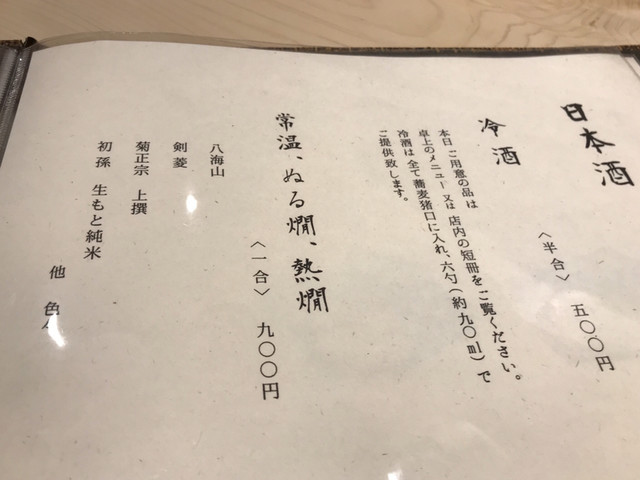 日本酒
〈半合〉 五〇〇円
冷酒
本日 ご用意の品 は
卓上のメニュー 又は 店内の短冊を ご覧ください。
冷酒は 全て蕎麦猪口に入れ、六勺(約九〇㎖)で
ご提供致します。
常温、ぬる燗、熱燗
〈一合〉 九〇〇円
八海山
剣菱
菊正宗 上撰
初孫 生もと純米
他 色